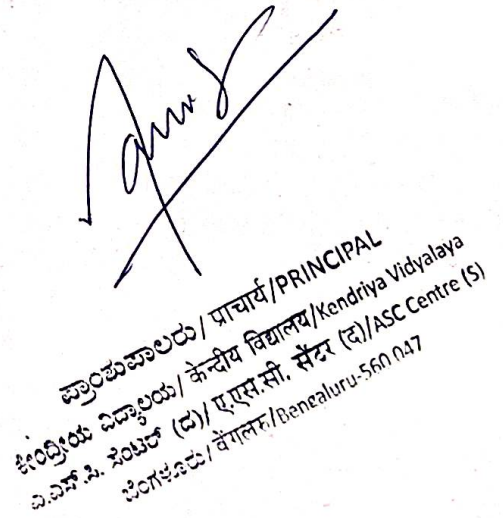 ಪ್ರಾಂಶುಪಾಲರು/ प्राचार्य/PRINCIPAL
ಕೇಂದ್ರೀಯ ವಿದ್ಯಾಲಯ/ केन्द्रीय विद्यालय/Kendriya Vidyalaya
ಎ.ಎಸ್.ಸಿ. ಸೆಂಟರ್ (ದ)/ ए.एस.सी. सेंटर (द)/ASC Centre (S)
ಬೆಂಗಳೂರು/ बेंगलरु/Bengaluru-560 047